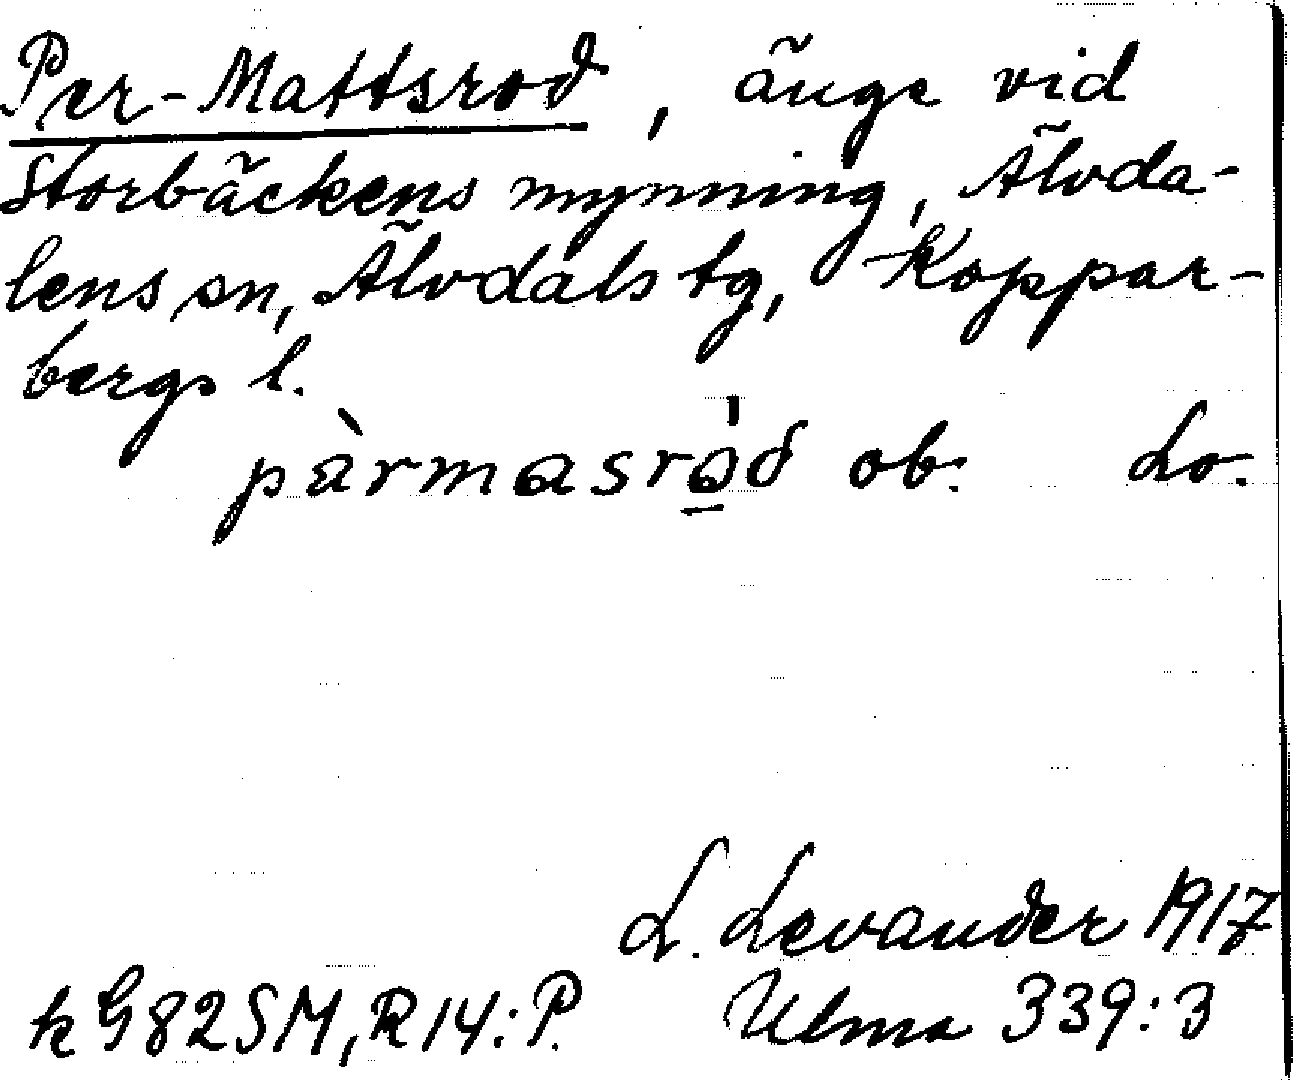 Per-Mattsrod, änge vid
Storbäckens mynning, Älvda-
lens sn, Älvdals tg, Koppar-
bergs l.
pàrmasrǻ̱d ob. Lo.
L. Levander 1917
k G82SM, R14:P. Ulma 339:3